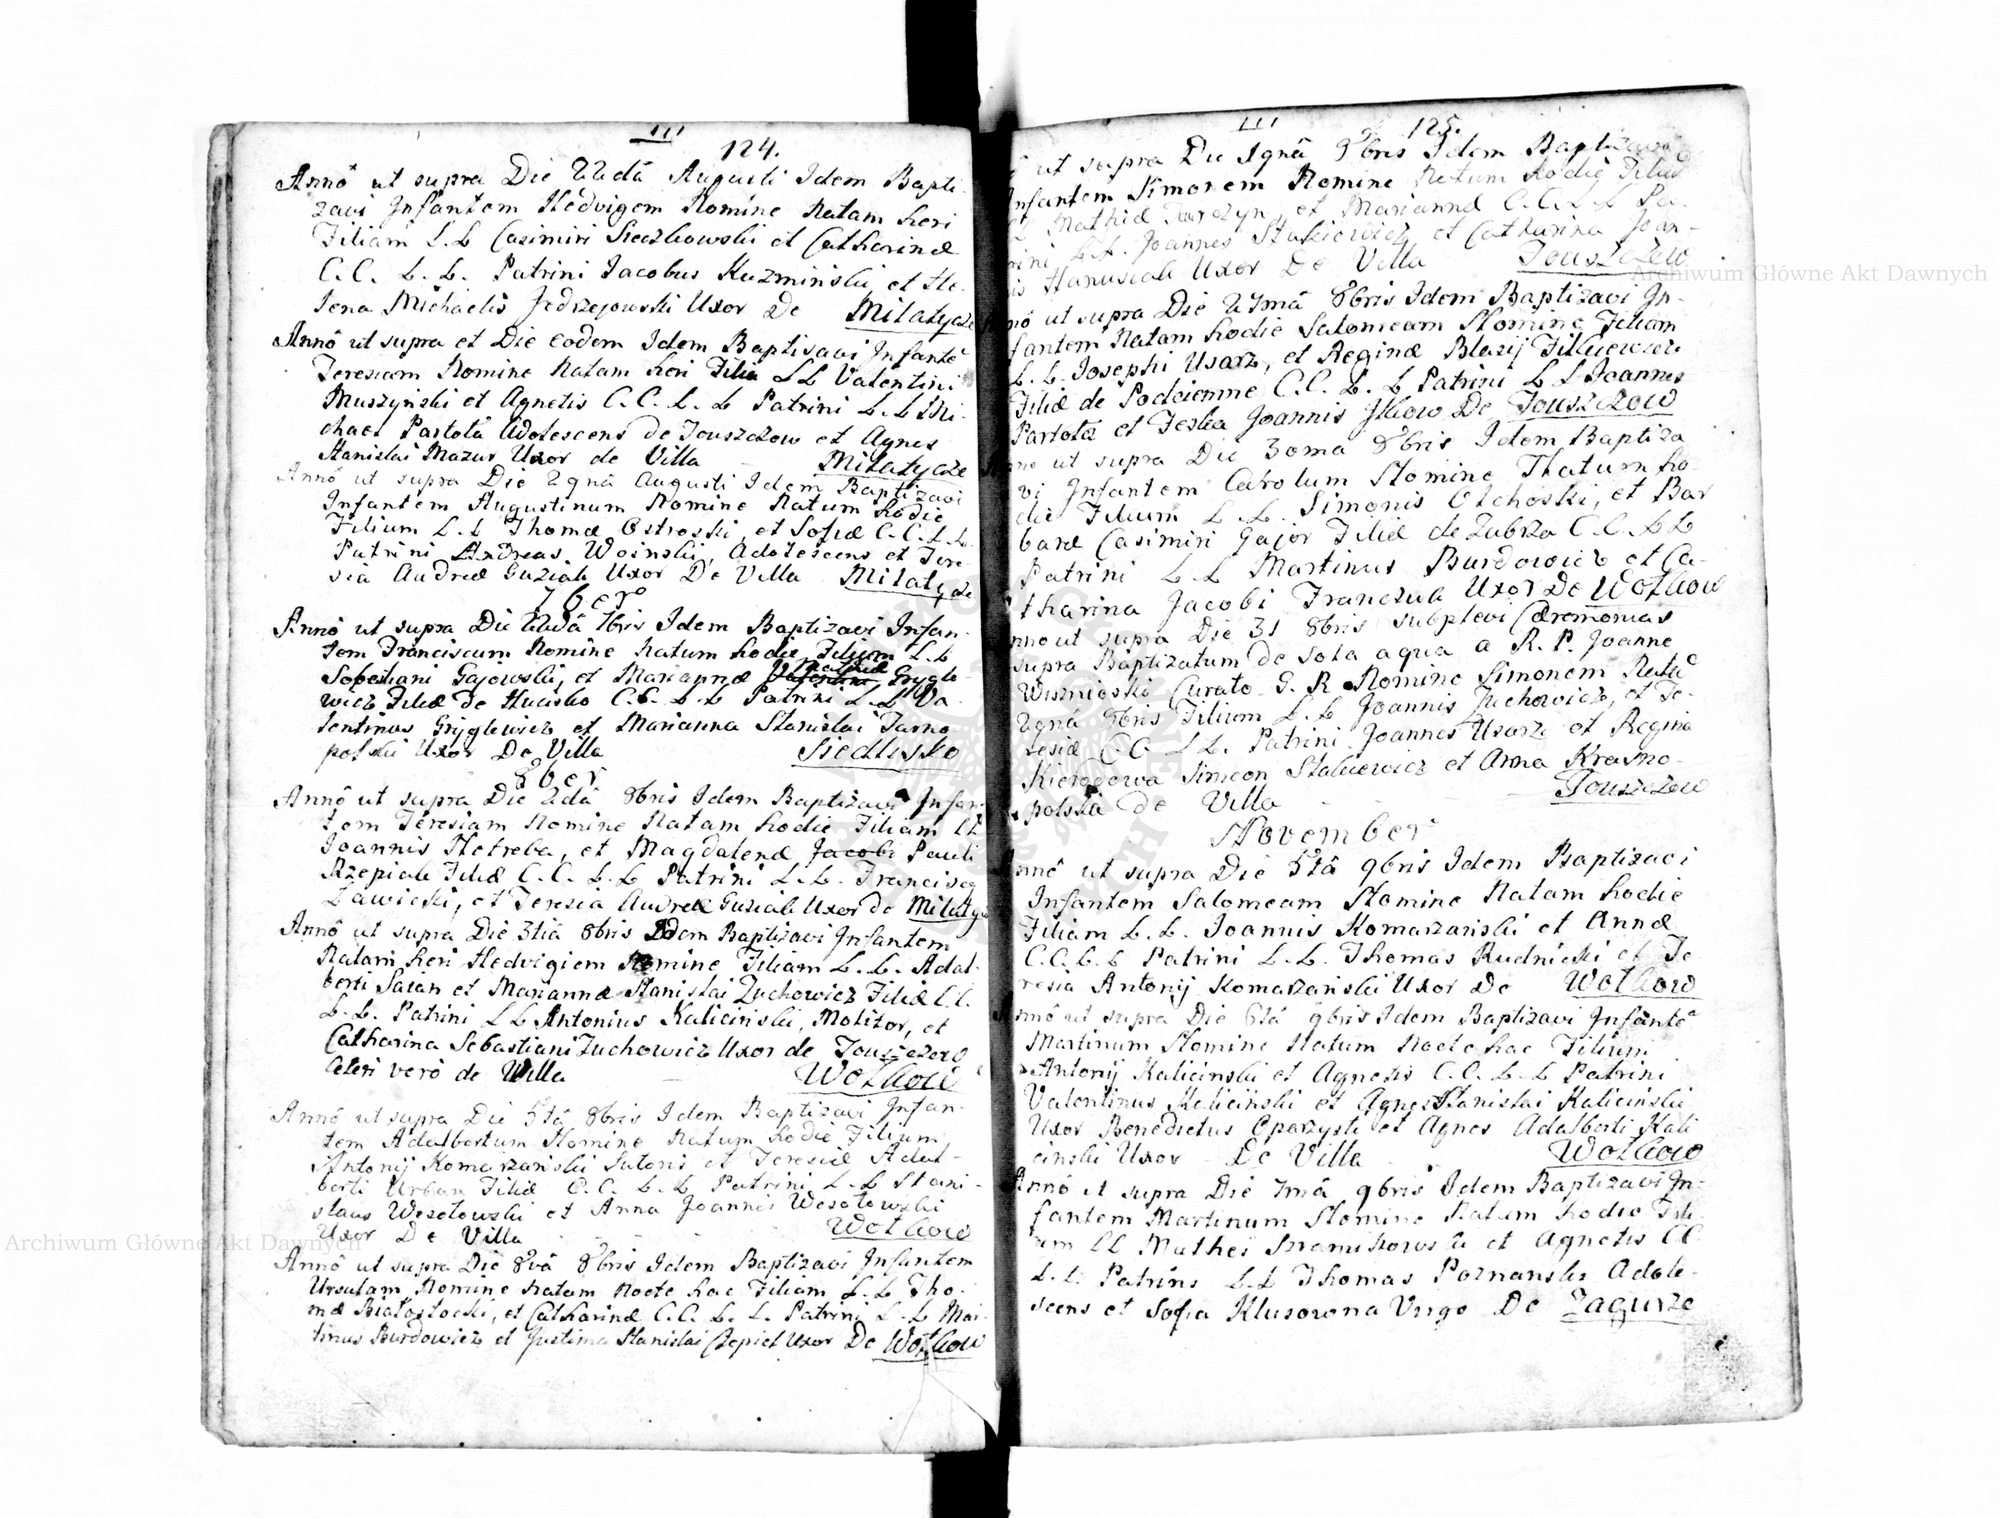 III
124.
Annô ut supra Die 22dâ Augusti Idem Bapti
zavi Infantem Hedvigem Nomine Natam heri
Filiam L.L Casimiri Sieczkowski et Catharinæ
C.C. L.L. Patrini Jacobus Kuzminski et He-
lena Michaelis Jędrzejowski Uxor De Milatycze
Annô ut supra et Die eodem Idem Baptisavi Infantê
Teresiam Nomine Natam heri Filia LL Valentini
Muszyński et Agnetis C.C. L.L Patrini L.L Mi-
chael Partota Adolescens de Touszczow et Agnes
Stanislai Mazur Uxor de Villa Milatycze
Annô ut supra Die 29nâ Augusti Idem Baptizavi
Infantem Augustinum Nomine Natum hodie
Filium L.L Thomæ Ostroski, et Sofiæ C.C. L.L.
Patrini Andreas Woinski, Adolescens et Tere-
sia Andreæ Guziak Uxor De Villa Milatycze
7ber
Annô ut supra Die 22dâ 7bris Idem Baptizavi Infan-
tem Franciscum Nomine Natum hodie Filium L.L
Sebestiani Gajowski, et Mariannæ Mathiæ Grygle-
wicz Filiæ De Hucisko C.C. L.L Patrini L.L Va-
lentinus Gryglewicz et Marianna Stanislai Tarno
polski Uxor De Villa Siedlisko
8ber
Annô ut supra Die 2dâ 8bris Idem Baptizavi Infan-
tem Teresiam Nomine Natam hodie Filiam LL
Joannis Hetreba, et Magdalenæ Jacobi Pauli
Rzepiak Filiæ C.C. L.L Patrini L.L. Francisco
Zawicki, et Teresia Andreæ Guziak Uxor de Milatyc
Annô ut supra Die 3tiâ 8bris Idem Baptizavi Infantem
Natam heri Hedvigiem Nomine Filiam L.L. Adal-
berti Saian et Mariannæ Stanislai Zuchowicz Filiæ C.C.
L.L. Patrini LL Antonius Kaliciński, Molitor, et
Catharina Sebastiani Zuchowicz Uxor de Touszczow
Ceteri verô de Villa Wolkow
Annô ut supra Die 5tâ 8bris Idem Baptizavi Infan-
tem Adalbertum Nomine Natum hodie Filium
Antonij Komarzański Sutoris et Teresiæ Adal-
berti Urban Filiæ C.C. L.L Patrini L.L Stani-
slaus Wesołowski et Anna Joannis Wesołowski
Uxor De Villa Wolkow
Annô ut supra Die 8vâ 8bris Idem Baptizavi Infantem
Ursulam Nomine Natam Nocte hac Filiam L.L Tho-
mæ Białostocki, et Catharinæ C.C. L.L. Patrini L.L Mar-
tinus Burdowicz et Justina Stanislai Czepiel Uxor De Wolkow
III
125.
ut supra Die 19nâ 8bris Idem Baptizavi
Infantem Simonem Nomine Natum hodie Filiu
Mathiæ et Mariannæ C.C. L.L Pa-
rini L.L. Joannes Stakiewicz et Catharina Joan-
is Hanusiak Uxor De Villa Touszczow
nnô ut supra Die 27mâ 8bris Idem Baptizavi In-
fantem Natam hodie Salomeam Nomine Filiam
L.L. Josephi Usarz, et Reginæ Blasij Filiuiewicz
Filiæ de Podciemne C.C. L.L Patrini L.L Joannes
Partota et Tekla Joannis Ilkow De Touszczow
nno ut supra Die 30ma 8bris Idem Baptiza
vi Infantem Carolum Nomine Natum ho-
die Filium L.L. Simonis Olchoski, et Bar
baræ Casimiri Gajor Filiæ de Zubrza C.C. L.L
Patrini L.L Martinus Burdowicz et Ca-
tharina Jacobi Franczuk Uxor De Wolkow
nno ut supra Die 31 8bris subplevi Cæremonias
supra Baptizatum de sola aqua a R.P. Joanne
Wismioski Curato G.R. Nomine Simonem Natū
29nâ 8bris Filium L.L Joannis Zuchowicz, et Te-
resiæ C.C. L.L. Patrini Joannes Usarz et Regina
Simeon Stakiewicz et Anna Krasno-
polska De Villa Touszczow
November
nnô ut supra Die 5tâ 9bris Idem Baptizavi
Infantem Salomeam Nomine Natam hodie
Filiam L.L. Joannis Komarzański et Annæ
C.C. L.L Patrini L.L. Thomas Rudnicki et Te
resia Antonij Komarzański Uxor De Wolkow
nnô ut supra Die 6tâ 9bris Idem Baptizavi Infantê
Martinum Nomine Natum Nocte hac Filium
Antonij Kalicinski et Agnetis C.C. L.L Patrini
Valentinus Kaliciński et Agnes Stanislai Kaliciński
Uxor Benedictus Oparzysti et Agnes Adalberti Kali
cinski Uxor De Villa Wolkow
Annô ut supra Die 7mâ 9bris Idem Baptizavi In-
fantem Martinum Nomine Natum hodie Fili-
um LL Mathei et Agnetis CC
L.L. Patrins L.L Thomas Poznanski Adole-
scens et Sofia Klusowna Virgo De Zagurze
Archiwum Główne Akt Dawnych
Archiwum Główne Akt Dawnych